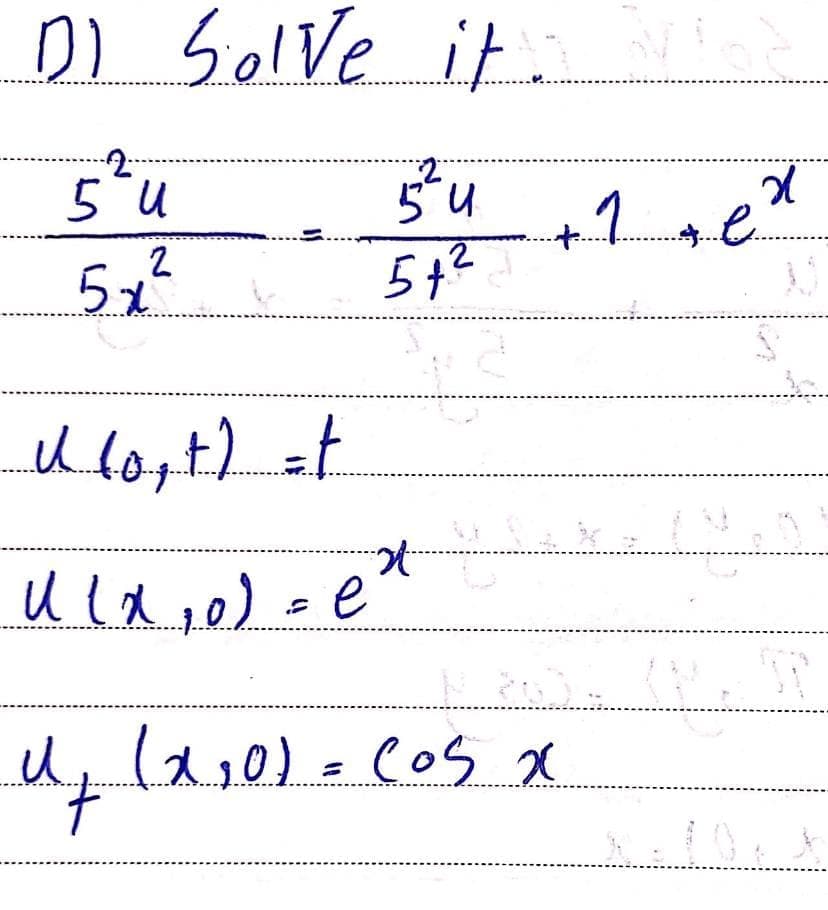 D) Solve it.
5²u/5x² = 5²u/5t² + 1 + eˣ
u(0,t) = t
u(x,0) = eˣ
uₜ(x,0) = cos x